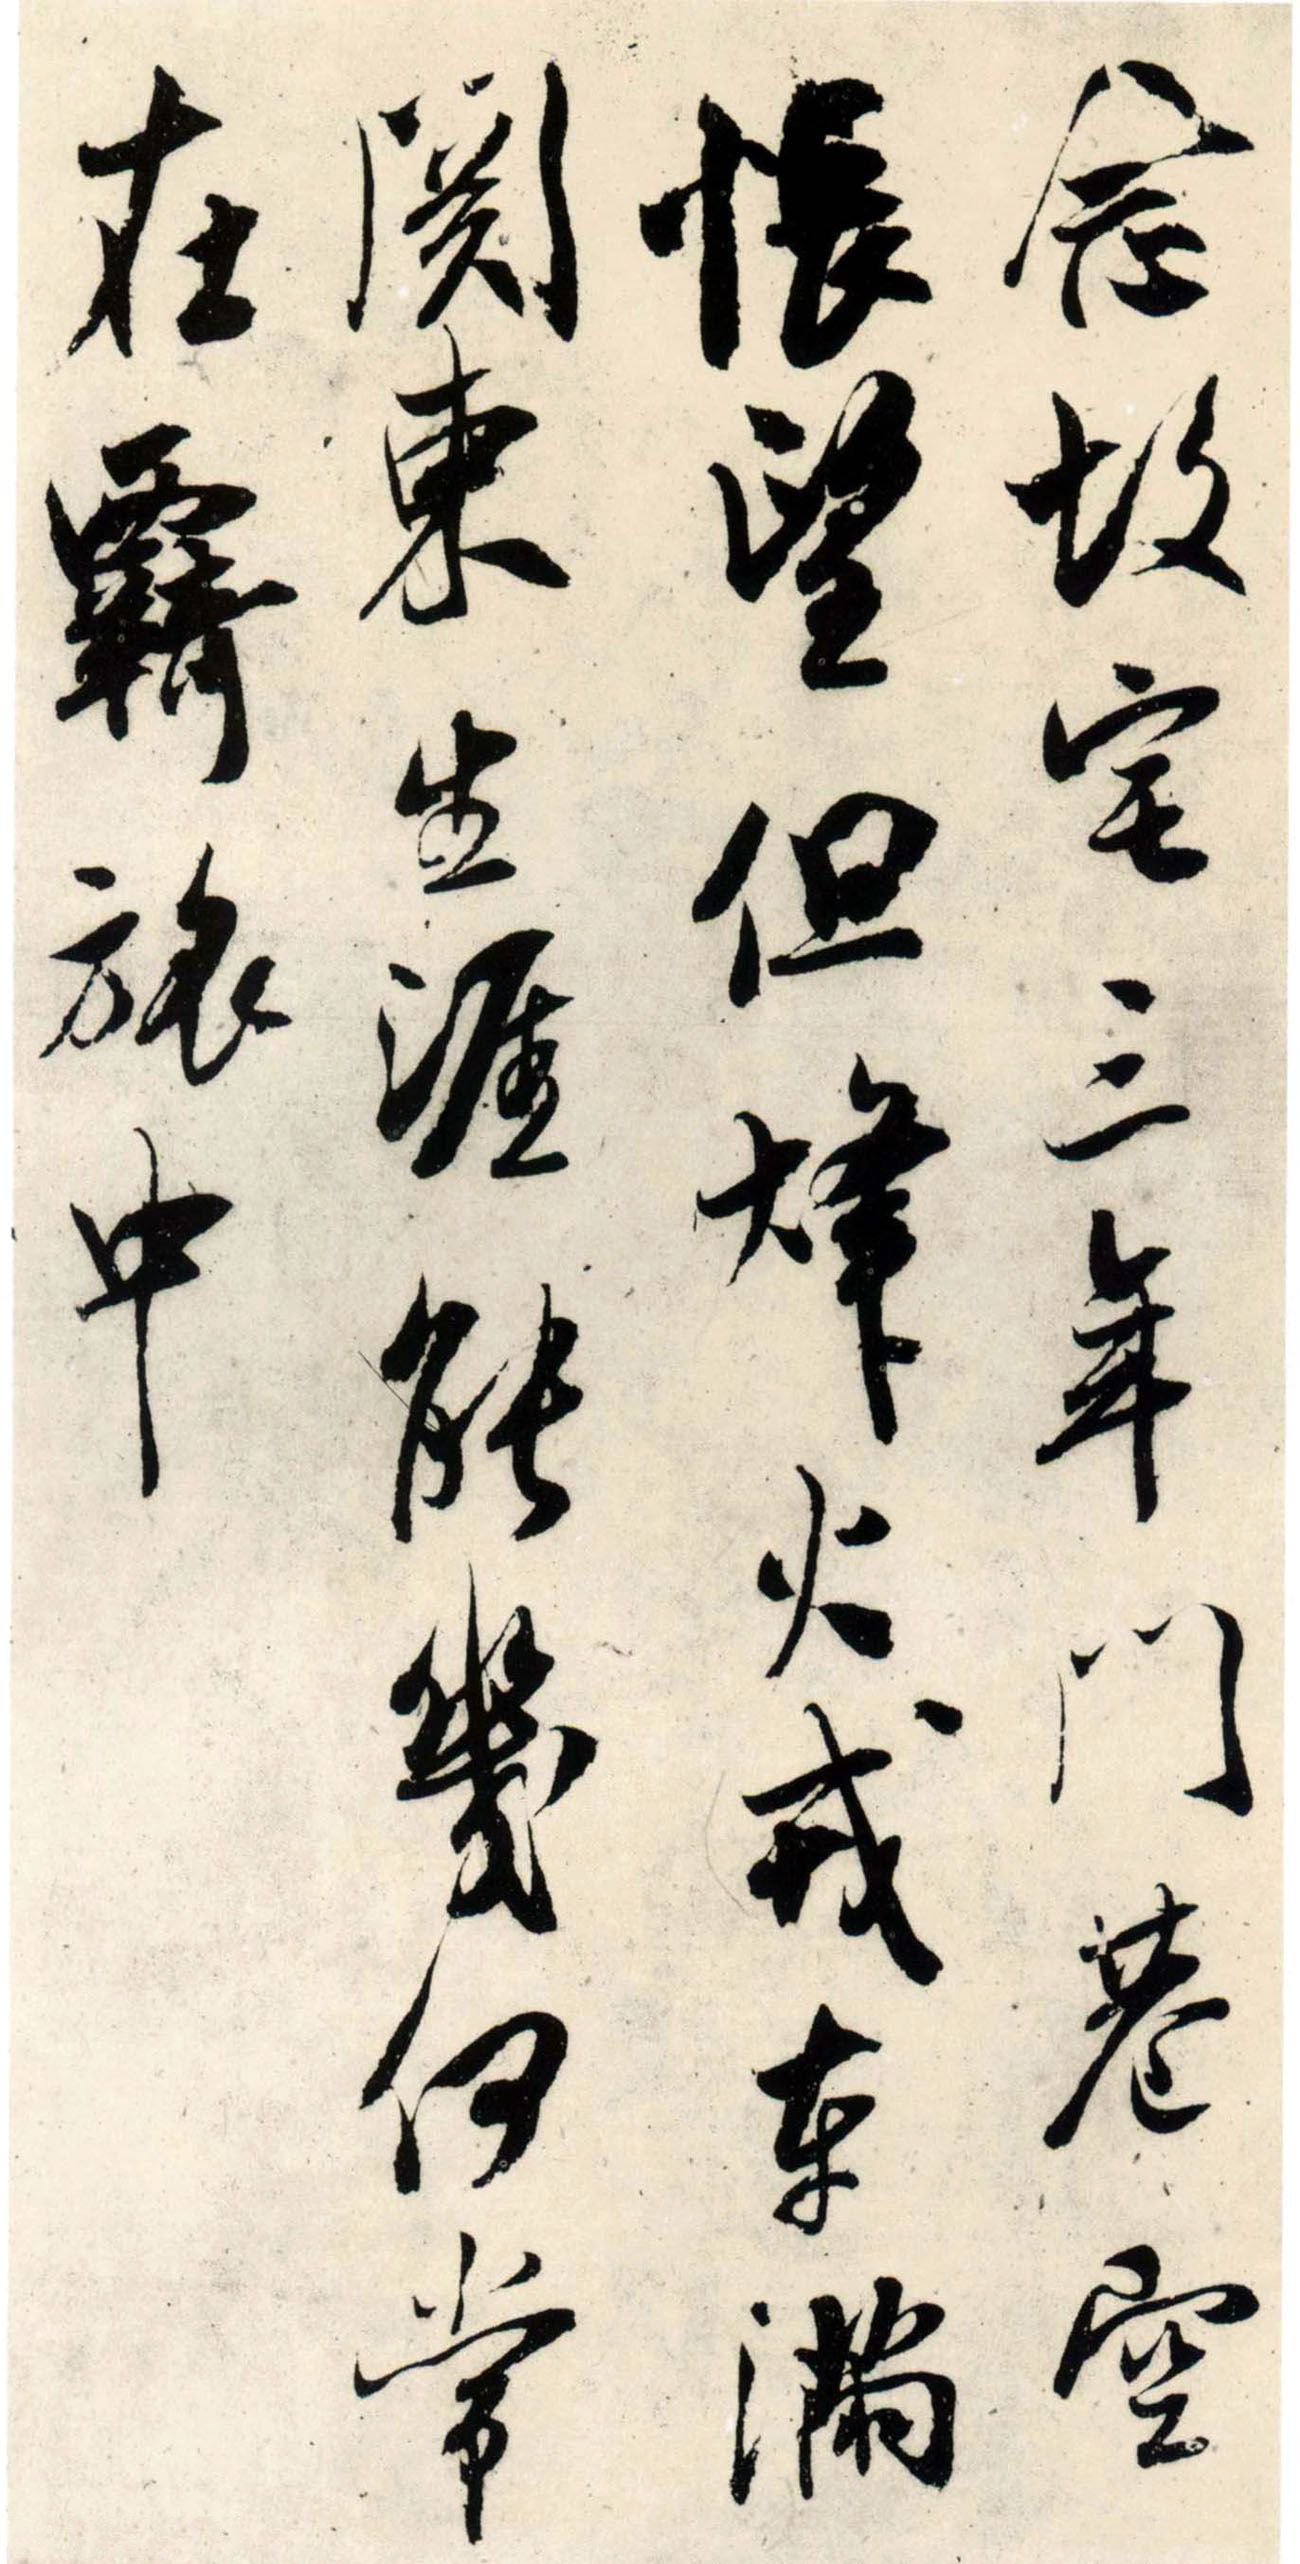 念故宅三年門巷空
悵望但烽火戎車滿
關東生涯能幾何常
在羈旅中